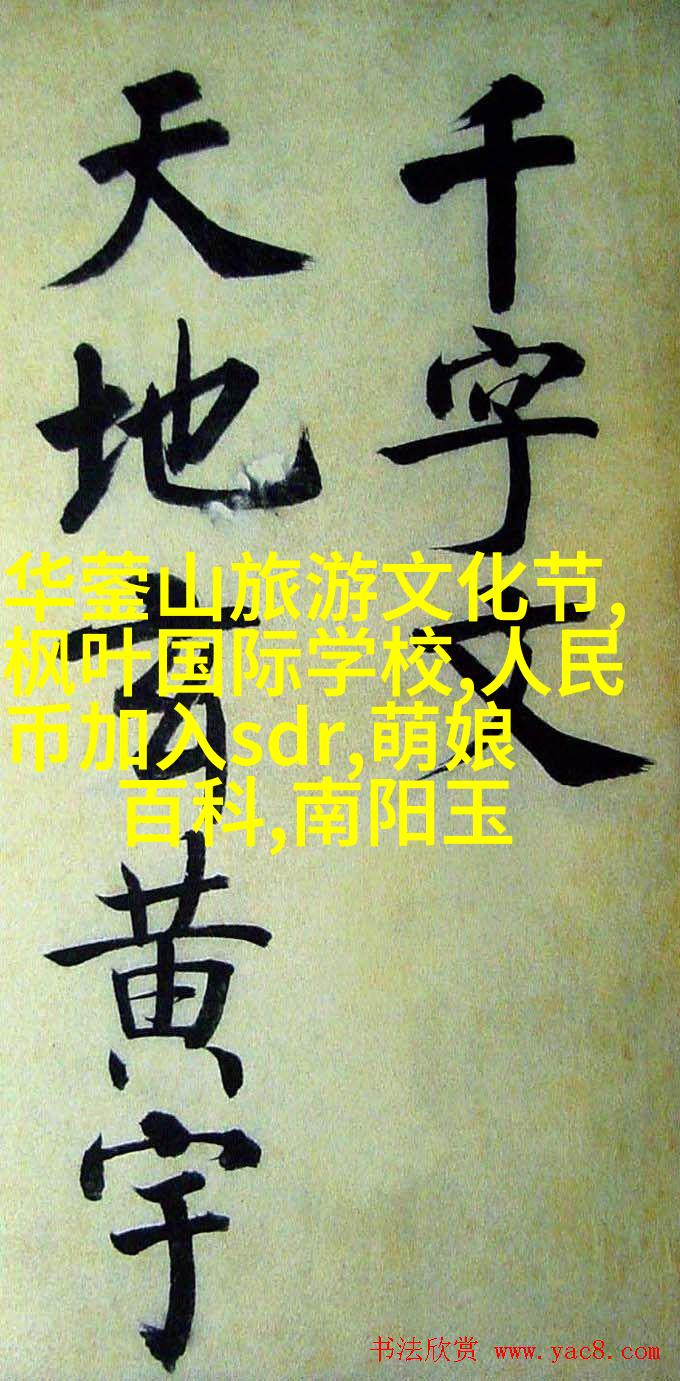 千字文
天地玄黄宇
华蓥山旅游文化节,
枫叶国际学校,人民
币加入sdr,萌娘
百科,南阳玉
书法欣赏 www.yac8.com